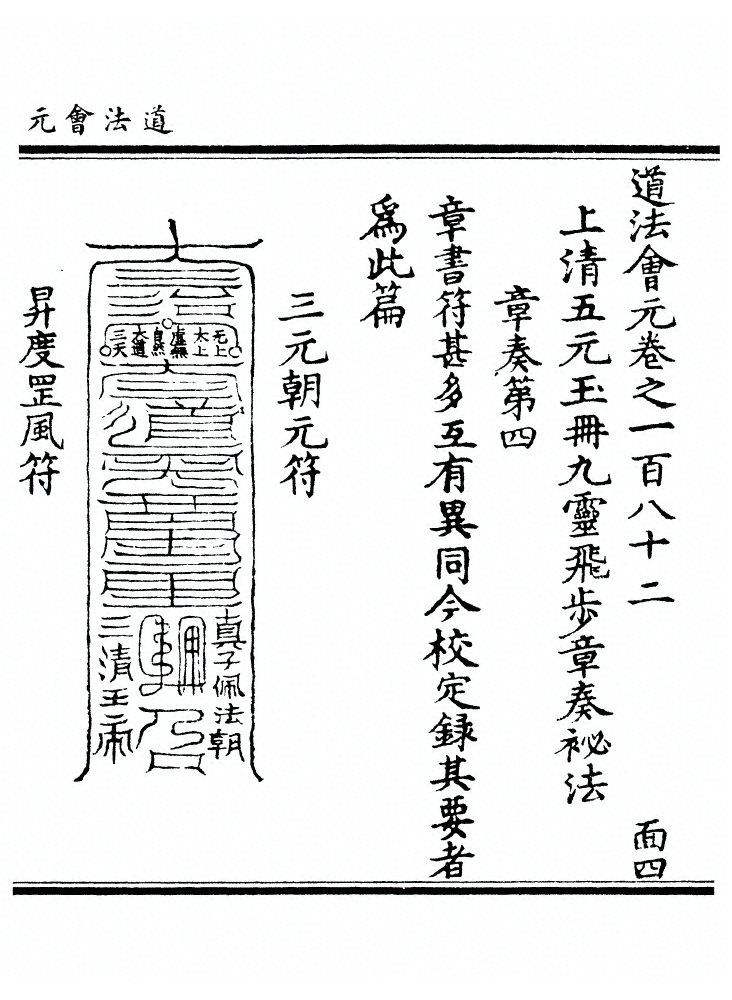 道法會元
道法會元卷之一百八十二 面四
上清五元玉冊九靈飛步章奏祕法
章奏第四
章書符甚多互有異同今校定録其要者
爲此篇
三元朝元符
无上
太上
虛無
自然
大道
三天
真子佩法朝
三清玉帝
昇度罡風符